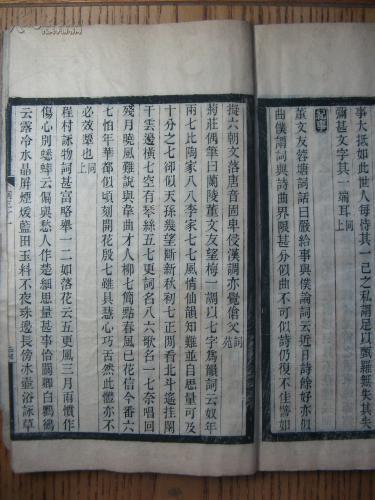 事大抵如此世人每恃其一己之私謂足以羈羅無失其失
彌甚文字其一端耳詞
紀事
董文友蓉塘詞話曰嚴給事與僕論詞云近日詩餘好亦似
曲僕謂詞與詩曲界限甚分似曲不可似詩仍復不佳譬如
擬六朝文落唐音固卑侵漢調亦覺傖父詞苑
菊莊偶筆曰蘭陵董文友望梅一調以七字為韻詞云奴年
兩七比陶家八八李家七七風情仙韻知難並自思量可及
十分之七卻似天孫幾望斷新秋初七正閒看北斗遙挂闌
干雲邊橫七空有琴絲五七更詞名八六歌名一七奈唱回
殘月曉風難說與韋曲才人柳七簡點春風已花信今番六
七怕年華都似頃刻開花殷七雖具慧心巧舌然此體亦不
必效顰也同上
程村詠物詞甚富略舉一二如落花云五更風三月雨慣作
傷心別蟋蟀云偏與愁人作楚細思量甚事恰關卿白鸚鵡
云露冷水晶屏煙煖藍田玉料不夜珠邊長傍冰壺浴詠草